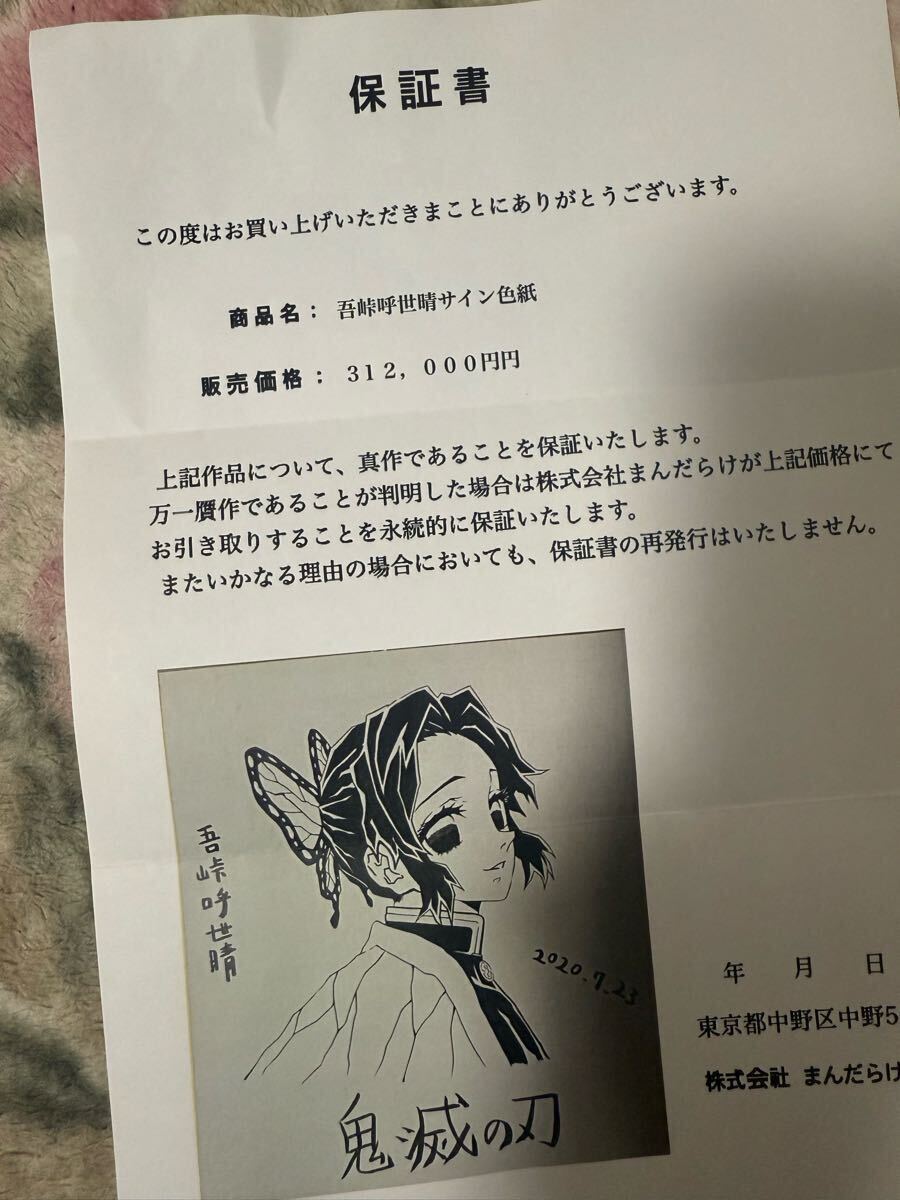 保証書
この度はお買い上げいただきまことにありがとうございます。
商品名： 吾峠呼世晴サイン色紙
販売価格： ３１２，０００円円
上記作品について、真作であることを保証いたします。
万一贋作であることが判明した場合は株式会社まんだらけが上記価格にて
お引き取りすることを永続的に保証いたします。
またいかなる理由の場合においても、保証書の再発行はいたしません。
吾峠呼世晴
2020.7.23
鬼滅の刃
年　月　日
東京都中野区中野5
株式会社 まんだらけ